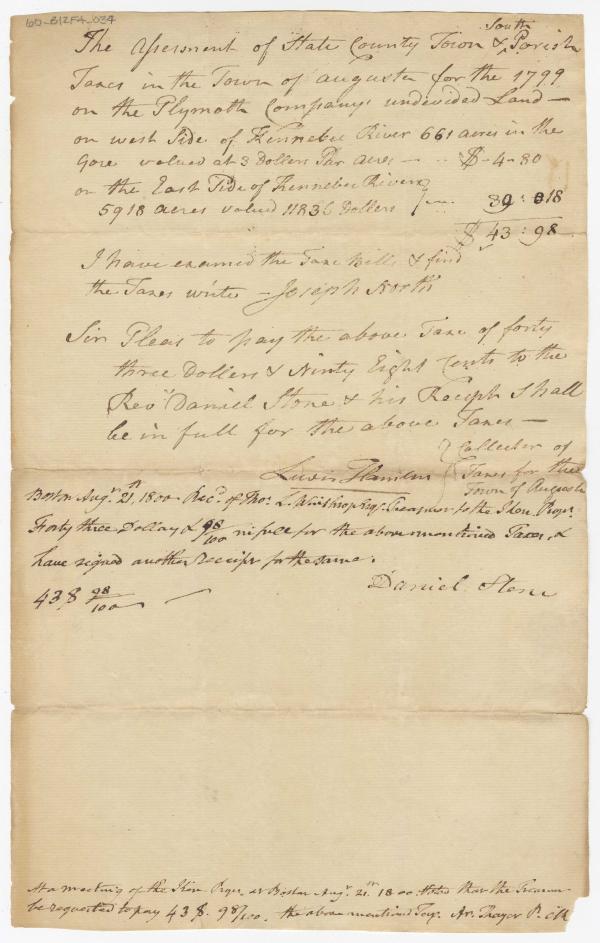 60-B12F4-034
The Assesment of State County Town & South Parish
Taxes in the Town of Augusta for the 1799
on the Plymoth Companys undevided Land —
on west Side of Kennebec River 661 acres in the
Gore valued at 3 Dollers Par acres — .. $ - 4 - 80
on the East Side of Kennebec River
5918 acres valued 11836 Dollers 39 : 18
$ 43 : 98
I have examined the Taxe Bills & find
the Taxes write — Joseph North
Sir Pleas to pay the above Taxe of forty
three Dollers & Ninty Eight Cents to the
Revd Daniel Stone & his Receipt Shall
be in full for the above Taxes —
Lewis Hamlen Collecter of
Taxes for the
Town of Augusta
Boston Augt. 21st, 1800 Recd. of Thos. L. Winthrop Esqr. Treasurer to the Ken. Propr.
Forty three Dollars & 98/100 in full for the above mentioned Taxes, &
have signed another Receipt for the same.
Daniel Stone
43 $ 98/100
At a meeting of the Ken Propr. at Boston Augt. 21st. 1800 Voted that the Treasurer
be requested to pay 43 $. 98/100. the above mentioned Tax. Ar. Thayer P. Clk